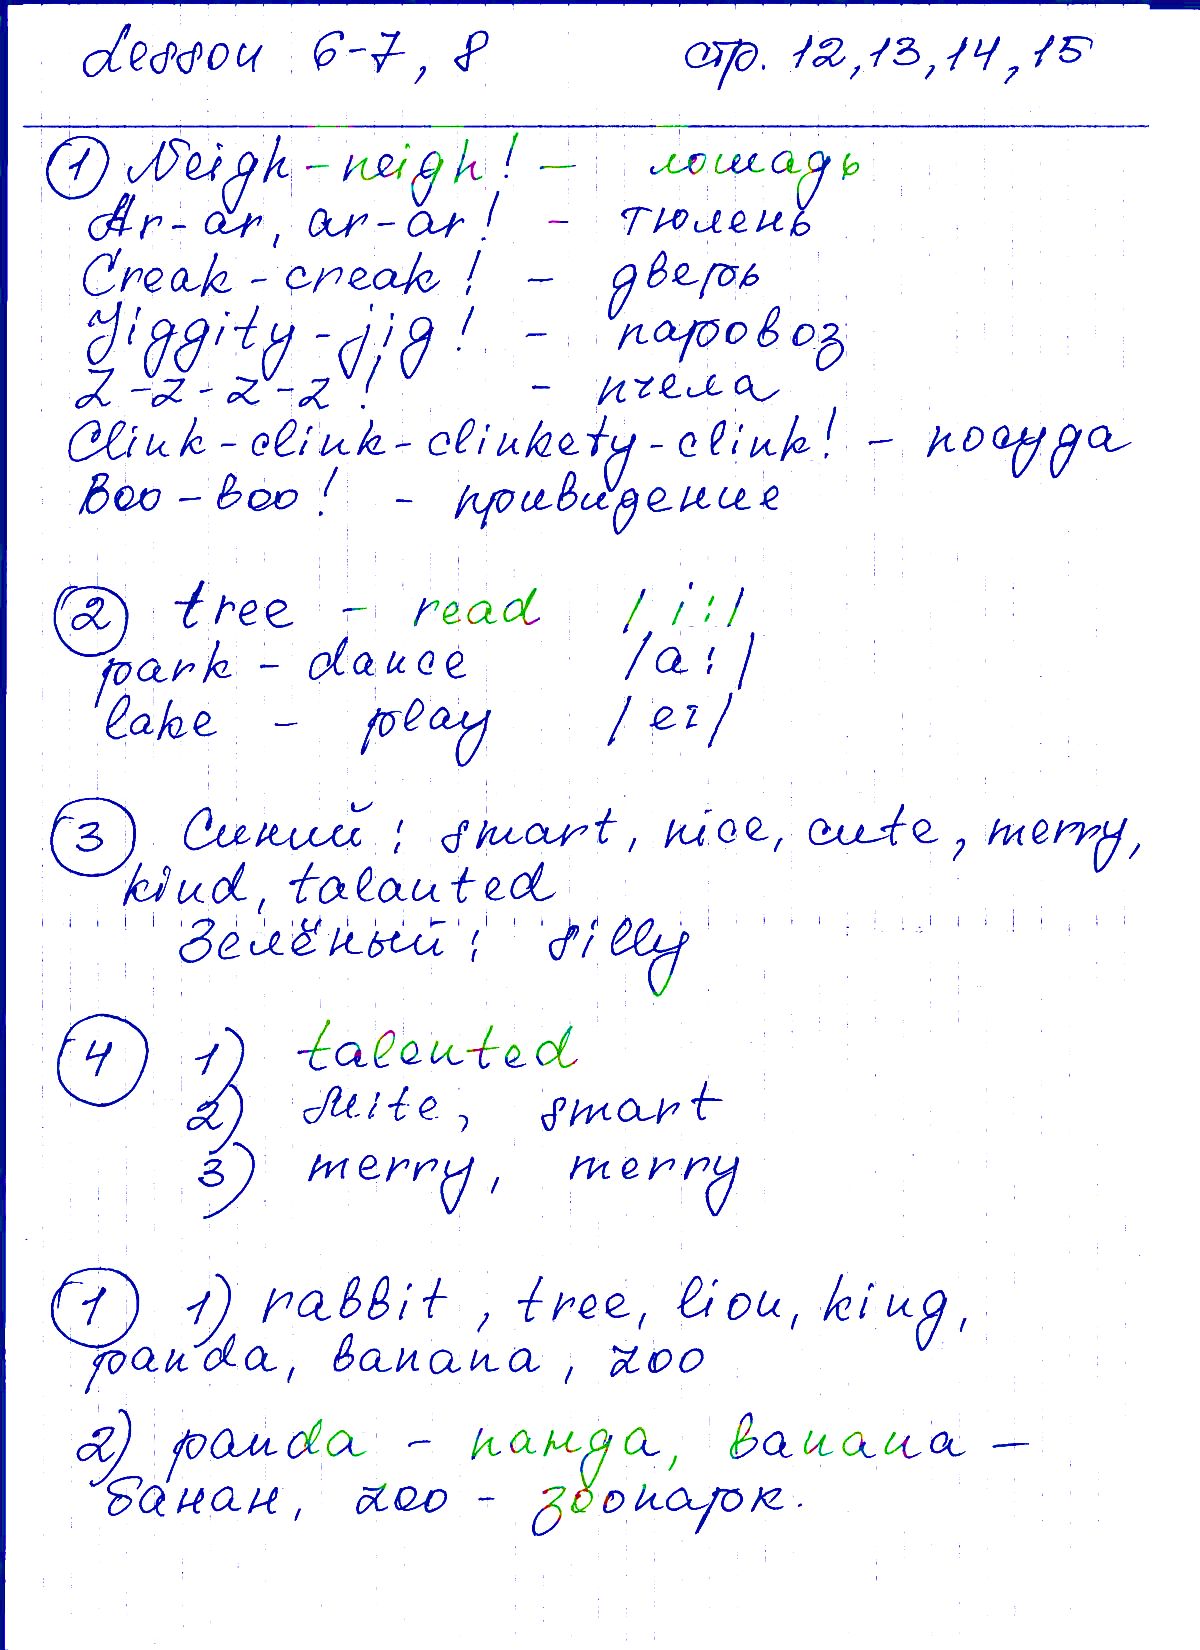 Lesson 6-7, 8 стр. 12, 13, 14, 15
1 Neigh-neigh! - лошадь
Ar-ar, ar-ar! - тюлень
Creak-creak! - дверь
Jiggity-jig! - паровоз
Z-z-z-z! - пчела
Clink-clink-clinkety-clink! - посуда
Boo-boo! - привидение
2 tree - read /i:/
park - dance /a:/
lake - play /eı/
3 Синий: smart, nice, cute, merry,
kind, talanted
Зелёный: silly
4 1) talented
2) , smart
3) merry, merry
1 1) rabbit, tree, lion, king,
panda, banana, zoo
2) panda - панда, banana -
банан, zoo - зоопарк.